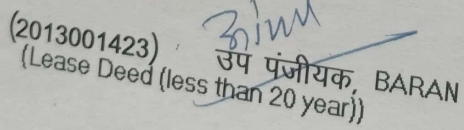 (2013001423)
उप पंजीयक, BARAN
(Lease Deed (less than 20 year))